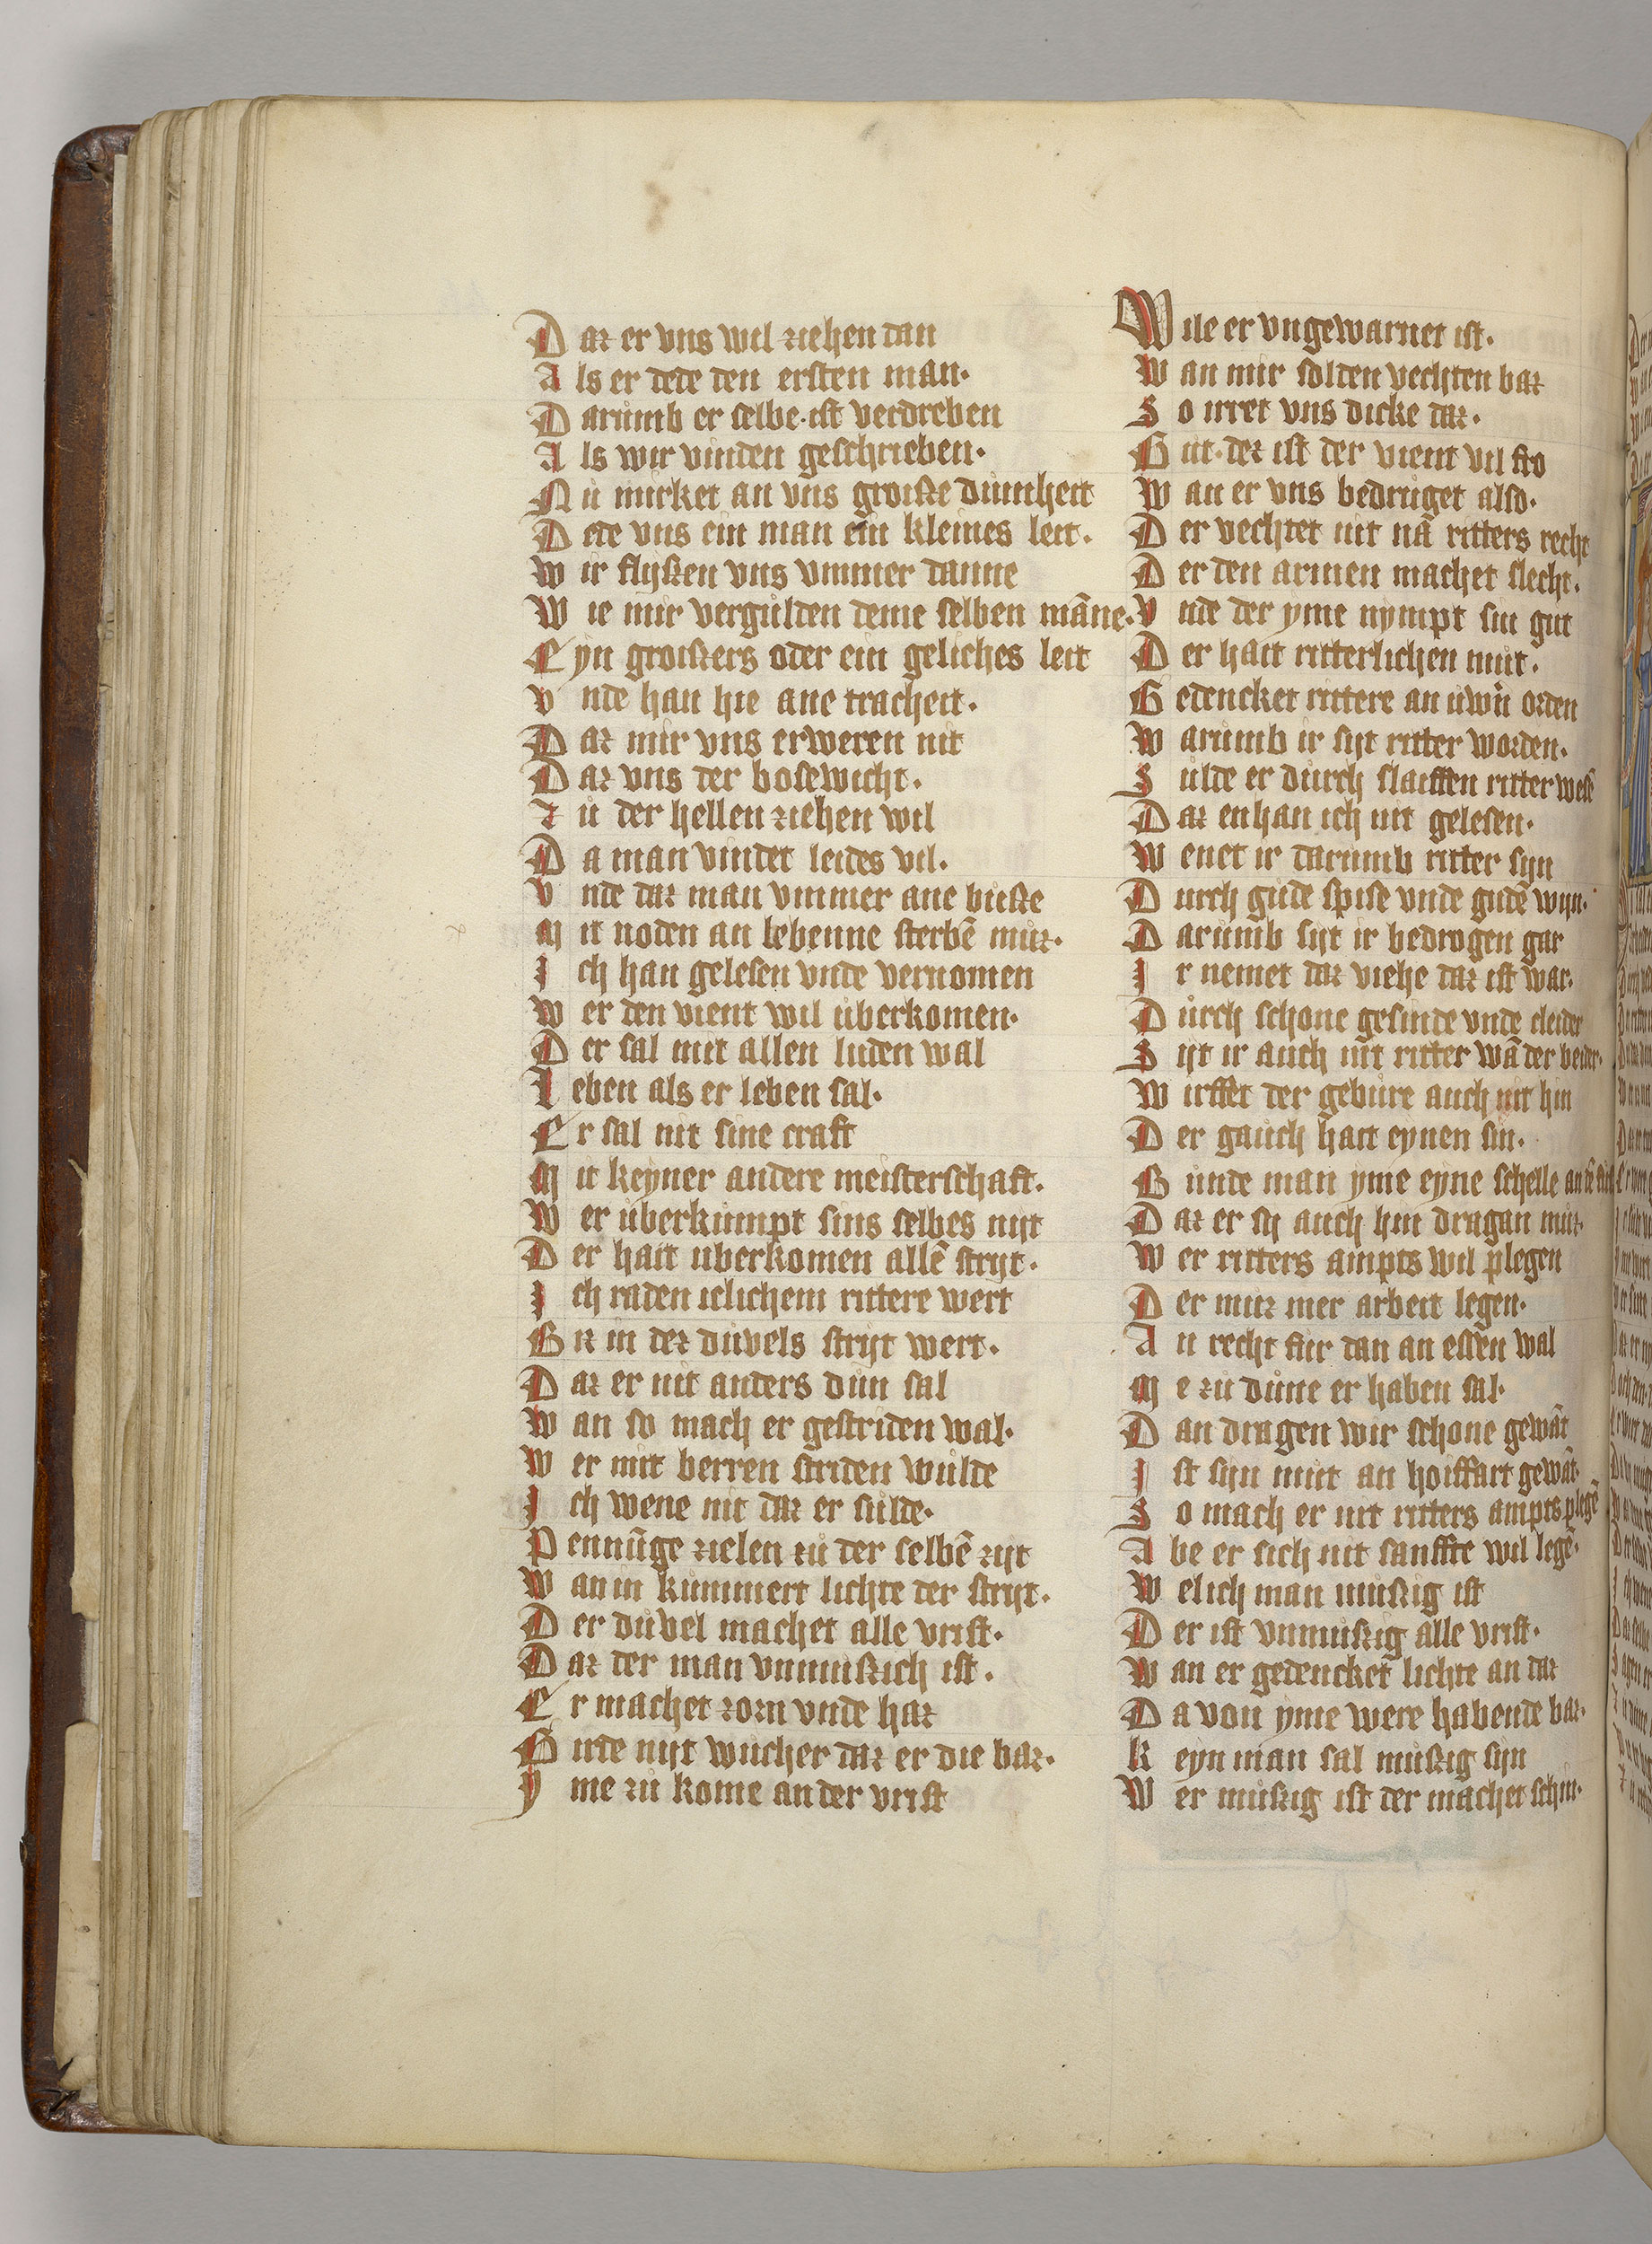 Daz er vns wil ziehen dan
Als er dede den ersten man.
Darůmb er selbe ist verdreben
Als wir vinden geschrieben.
Nů mirket an vns groisze dumheit
Dete vns ein man ein kleines leit.
Wir flyszen vns vmmer danne
Wie mir vergůlden deme selben mãne.
Eyn groiszers oder ein geliches leit
Vnde han hie ane tracheit.
Daz mir vns erweren nit
Daz vns der bosewicht.
Zů der hellen ziehen wil
Da man vindet leides vil.
Vnde daz man vmmer ane bůsze
Mit noden an lebenne sterbẽ můz.
Ich han gelesen vnde vernomen
Wer den vient wil ůberkomen.
Der sal mit allen luden wal
Leben als er leben sal.
Er sal mit sine craft
Mit keyner andere meisterschaft.
Wer ůberkumpt sins selbes nijt
Der hait uberkomen allẽ strijt.
Ich raden iclichem rittere wert
Git in dez důvels strijt wert.
Daz er nit anders důn sal
Wan so mach er gestriden wal.
Wer mit berren striden wůlde
Ich wene nit daz er sůlde.
Pennũge zielen zů der selbẽ zijt
Wan in kůmmert lichte der strijt.
Der důvel machet alle vrist.
Daz der man vnmůszich ist.
Er machet zorn vnde haz
Gide nijt wůcher daz er die baz.
Yme zů kome an der vrist
Wile er vngewarnet ist.
Wan mir solden vechten baz
So irret vns dicke daz.
Git. dez ist der vient vil fro
Wan er vns bedrůget also.
Der vechtet nit nã ritters recht
Der den armen machet slecht.
Vnde der yme nympt sin gut
Der hait ritterlichen můt.
Gedencket rittere an ůwñ orden
Warůmb ir sijt ritter worden.
Sůlde er důrch slaiffen ritter wesẽ
Daz enhan ich nit gelesen.
Wenet ir darumb ritter sijn
Durch gůde spise vnde gudẽ wijn.
Darůmb sijt ir bedrogen gar
Ir nemet daz viehe daz ist war.
Důrch schone gesinde vnde cleider
Sijt ir auch nit ritter wã der beider.
Wirffet der gebůre auch nit hin
Der gauch hait eynen sin.
Bůnde man yme eyne schelle an
Daz er sij auch hin dragan můz.
Wer ritters ampts wil plegen
Der můz mer arbeit legen.
An recht fůr dan an essen wal
Me zů důne er haben sal.
Dan dragen wir schone gewãt
Ist sijn můt an hoiffart gewãt.
So mach er nit ritters ampts plegẽ
Abe er sich nit sanffte wil legẽ.
Welich man můszig ist
Der ist vnmůszig alle vrist.
Wan er gedencket lichte an daz
Da von yme were habende baz.
Keyn man sal můszig sijn
Wer můszig ist der machet schin.